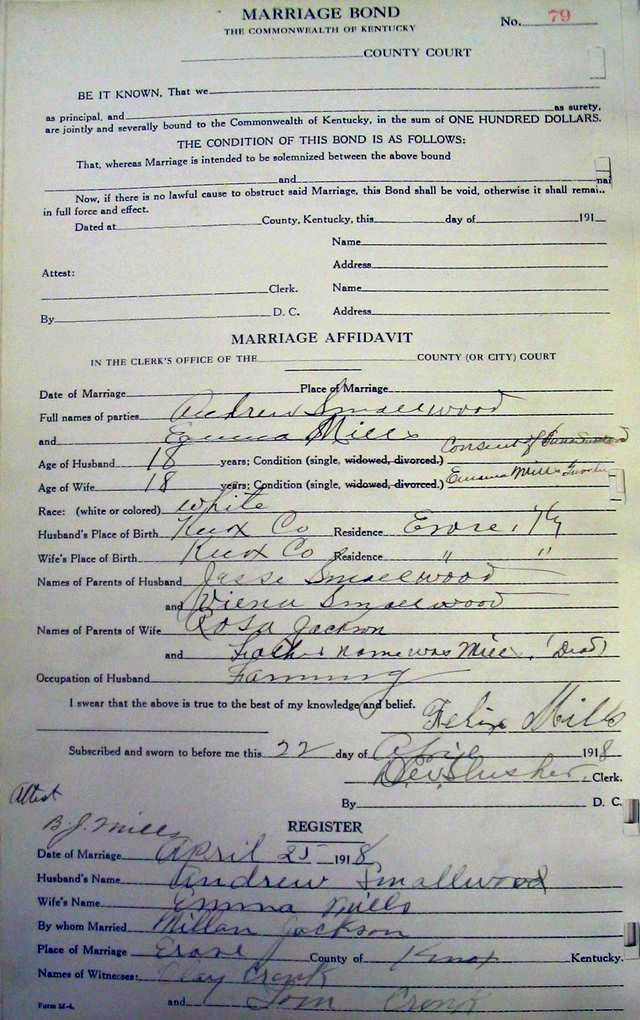 MARRIAGE BOND
No. 79
THE COMMONWEALTH OF KENTUCKY
COUNTY COURT
BE IT KNOWN, That we
as principal, and as surety,
are jointly and severally bound to the Commonwealth of Kentucky, in the sum of ONE HUNDRED DOLLARS.
THE CONDITION OF THIS BOND IS AS FOLLOWS:
That, whereas Marriage is intended to be solemnized between the above bound
and
Now, if there is no lawful cause to obstruct said Marriage, this Bond shall be void, otherwise it shall remai..
in full force and effect.
Dated at County, Kentucky, this day of 191
Name
Address
Attest:
Clerk. Name
By D. C. Address
MARRIAGE AFFIDAVIT
IN THE CLERK'S OFFICE OF THE COUNTY (OR CITY) COURT
Date of Marriage Place of Marriage
Full names of parties Andrew Smallwood
and Emma Mills
Age of Husband 18 years; Condition (single, widowed, divorced.) Consent of
Age of Wife 18 years; Condition (single, widowed, divorced.) Emma Mills
Race: (white or colored) white
Husband's Place of Birth Knox Co Residence Ky
Wife's Place of Birth Knox Co Residence " "
Names of Parents of Husband Jesse Smallwood
and Viena Smallwood
Names of Parents of Wife Rosa Jackson
and Father name was Mills (Dead)
Occupation of Husband Farming
I swear that the above is true to the best of my knowledge and belief.
Felix Mills
Subscribed and sworn to before me this 22 day of April 1918
Slusher, Clerk.
By D. C.
Attest
B. J. Mills
REGISTER
Date of Marriage April 25 1918
Husband's Name Andrew Smallwood
Wife's Name Emma Mills
By whom Married Millan Jackson
Place of Marriage County of Knox Kentucky.
Names of Witnesses: Clay Cronk
and Tom Cronk
Form M-4.